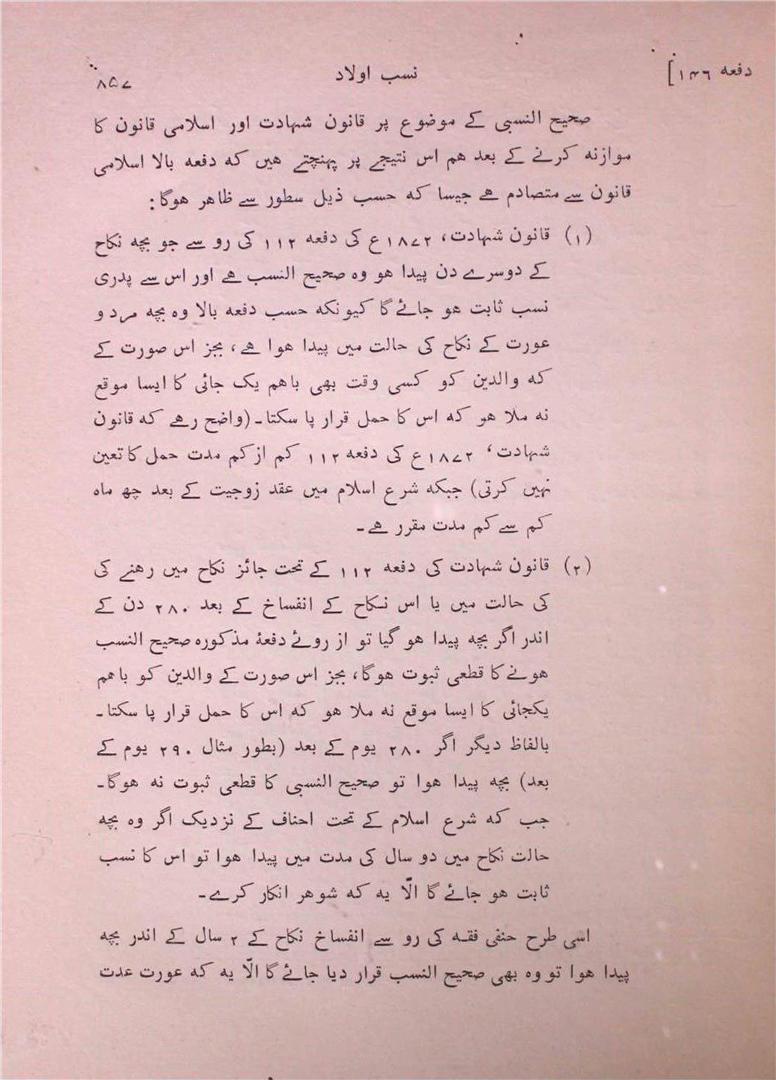 دفعہ ۱۴۶]
نسب اولاد
۸۵۷
صحیح النسبی کے موضوع پر قانون شہادت اور اسلامی قانون کا
موازنہ کرنے کے بعد ہم اس نتیجے پر پہنچتے ہیں کہ دفعہ بالا اسلامی
قانون سے متصادم ہے جیسا کہ حسب ذیل سطور سے ظاہر ہوگا:
(۱) قانون شہادت، ۱۸۷۲ع کی دفعہ ۱۱۲ کی رو سے جو بچہ نکاح
کے دوسرے دن پیدا ہو وہ صحیح النسب ہے اور اس سے پدری
نسب ثابت ہو جائے گا کیونکہ حسب دفعہ بالا وہ بچہ مرد و
عورت کے نکاح کی حالت میں پیدا ہوا ہے، بجز اس صورت کے
کہ والدین کو کسی وقت بھی باہم یک جائی کا ایسا موقع
نہ ملا ہو کہ اس کا حمل قرار پا سکتا۔ (واضح رہے کہ قانون
شہادت، ۱۸۷۲ع کی دفعہ ۱۱۲ کم از کم مدت حمل کا تعین
نہیں کرتی) جبکہ شرع اسلام میں عقد زوجیت کے بعد چھ ماہ
کم سے کم مدت مقرر ہے۔
(۲) قانون شہادت کی دفعہ ۱۱۲ کے تحت جائز نکاح میں رہنے کی
کی حالت میں یا اس نکاح کے انفساخ کے بعد ۲۸۰ دن کے
اندر اگر بچہ پیدا ہو گیا تو از روئے دفعۂ مذکورہ صحیح النسب
ہونے کا قطعی ثبوت ہوگا، بجز اس صورت کے والدین کو باہم
یکجائی کا ایسا موقع نہ ملا ہو کہ اس کا حمل قرار پا سکتا۔
بالفاظ دیگر اگر ۲۸۰ یوم کے بعد (بطور مثال ۲۹۰ یوم کے
بعد) بچہ پیدا ہوا تو صحیح النسبی کا قطعی ثبوت نہ ہوگا۔
جب کہ شرع اسلام کے تحت احناف کے نزدیک اگر وہ بچہ
حالت نکاح میں دو سال کی مدت میں پیدا ہوا تو اس کا نسب
ثابت ہو جائے گا الّا یہ کہ شوہر انکار کرے۔
اسی طرح حنفی فقہ کی رو سے انفساخ نکاح کے ۲ سال کے اندر بچہ
پیدا ہوا تو وہ بھی صحیح النسب قرار دیا جائے گا الّا یہ کہ عورت عدت